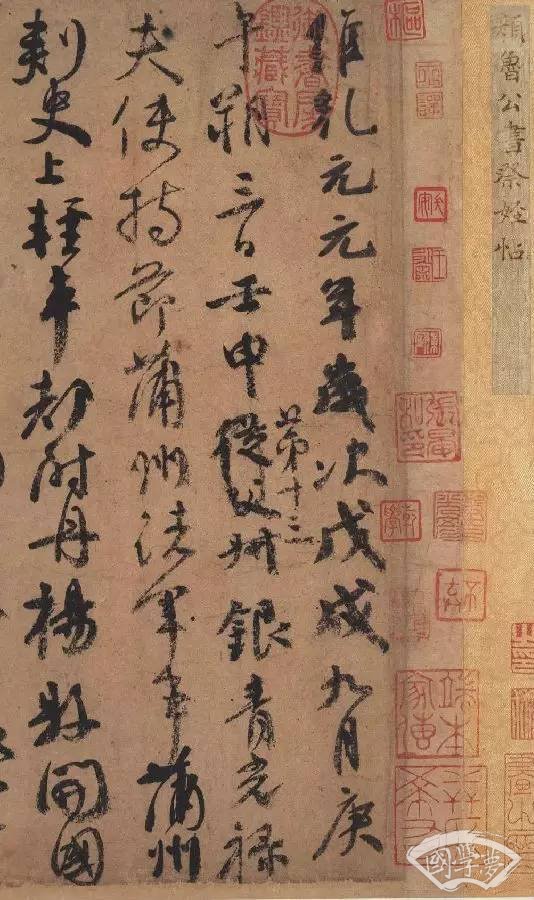 顏魯公書祭姪帖
維乾元元年歲次戊戌九月庚
午朔三日壬申從父叔銀青光祿
第十三
夫使持節蒲州諸軍事蒲州
刺史上輕車都尉丹楊縣開國
御書房鑑藏寶
端本家傳
國學夢